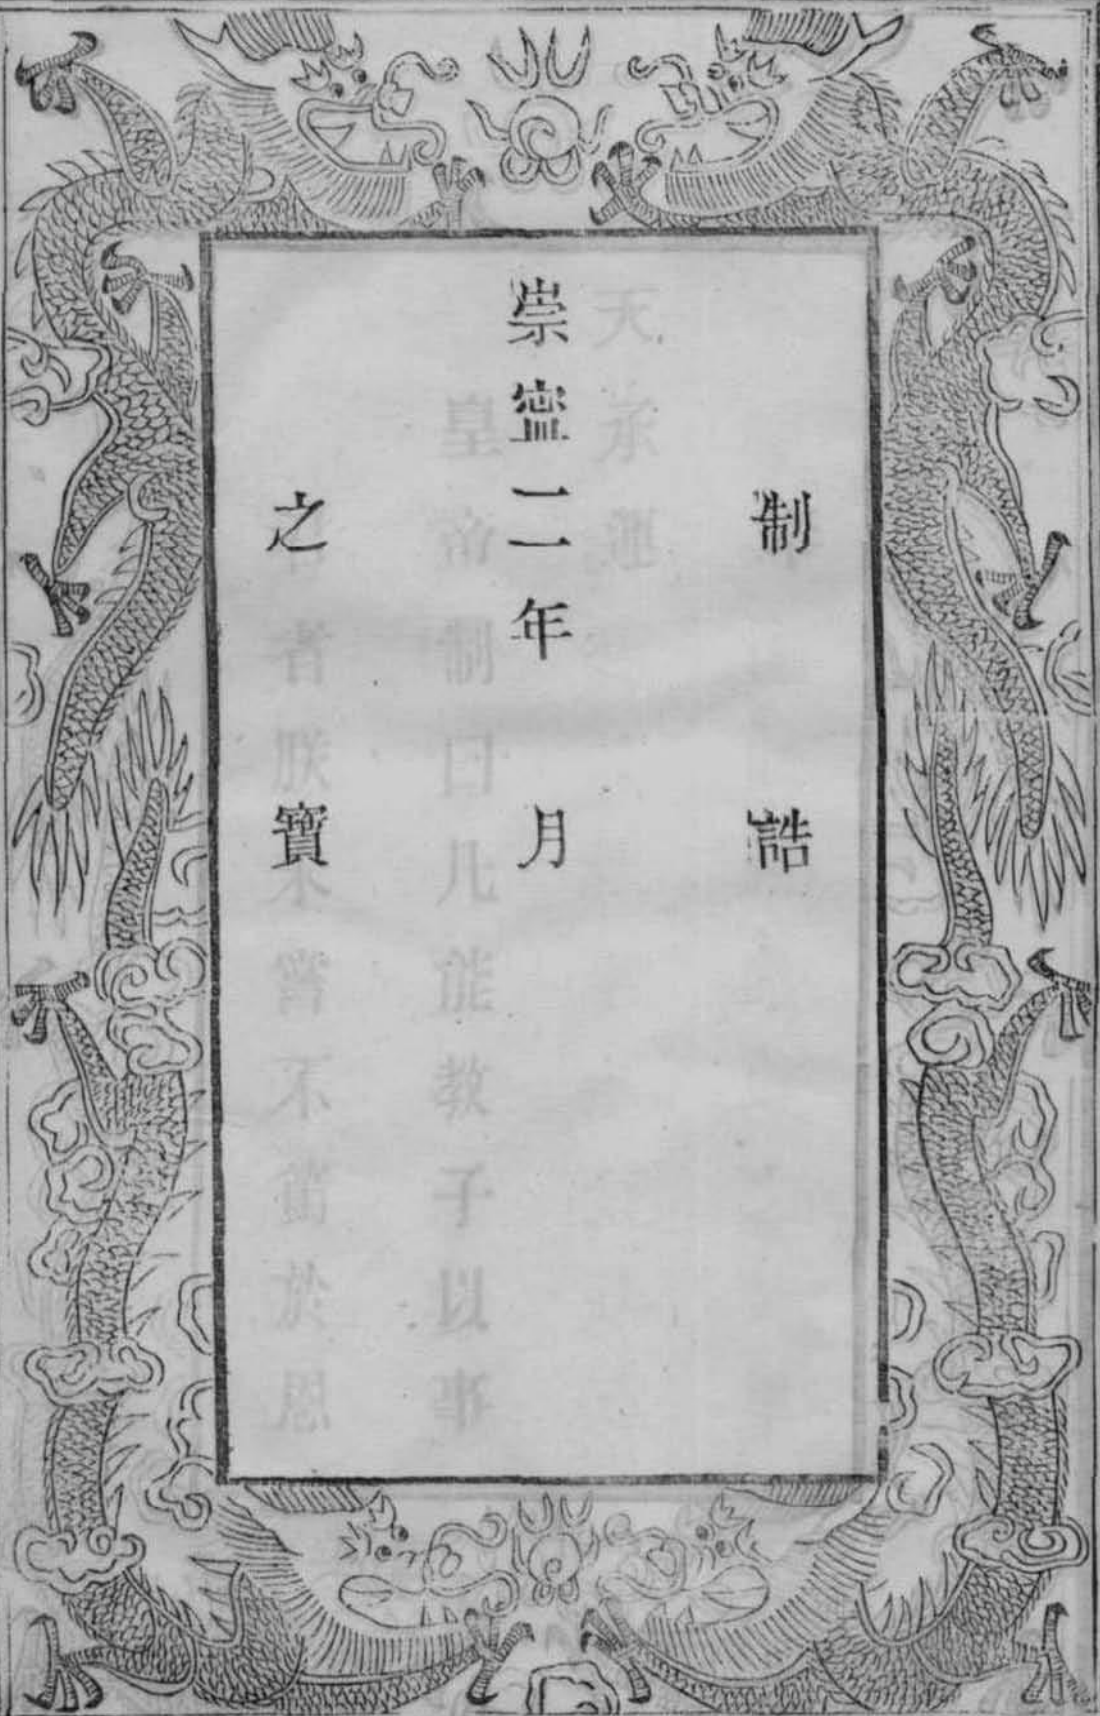 制誥
崇寍二年　月
之寶